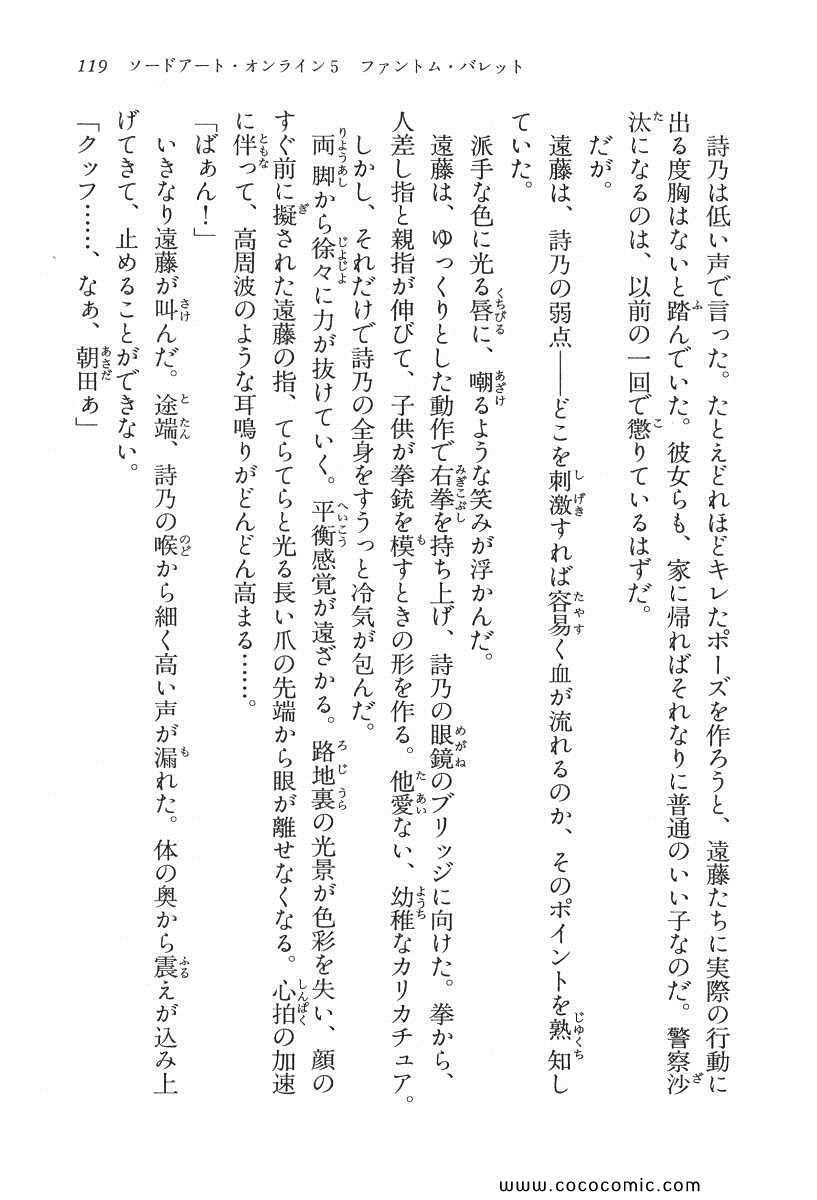 119 ソードアート・オンライン5 ファントム・バレット
詩乃は低い声で言った。たとえどれほどキレたポーズを作ろうと、遠藤たちに実際の行動に
出る度胸はないと踏んでいた。彼女らも、家に帰ればそれなりに普通のいい子なのだ。警察沙
汰になるのは、以前の一回で懲りているはずだ。
だが。
遠藤は、詩乃の弱点――どこを刺激すれば容易く血が流れるのか、そのポイントを熟知し
ていた。
派手な色に光る唇に、嘲るような笑みが浮かんだ。
遠藤は、ゆっくりとした動作で右拳を持ち上げ、詩乃の眼鏡のブリッジに向けた。拳から、
人差し指と親指が伸びて、子供が拳銃を模すときの形を作る。他愛ない、幼稚なカリカチュア。
しかし、それだけで詩乃の全身をすうっと冷気が包んだ。
両脚から徐々に力が抜けていく。平衡感覚が遠ざかる。路地裏の光景が色彩を失い、顔の
すぐ前に擬された遠藤の指、てらてらと光る長い爪の先端から眼が離せなくなる。心拍の加速
に伴って、高周波のような耳鳴りがどんどん高まる……。
「ばぁん！」
いきなり遠藤が叫んだ。途端、詩乃の喉から細く高い声が漏れた。体の奥から震えが込み上
げてきて、止めることができない。
「クッフ……、なぁ、朝田ぁ」
www.cococomic.com